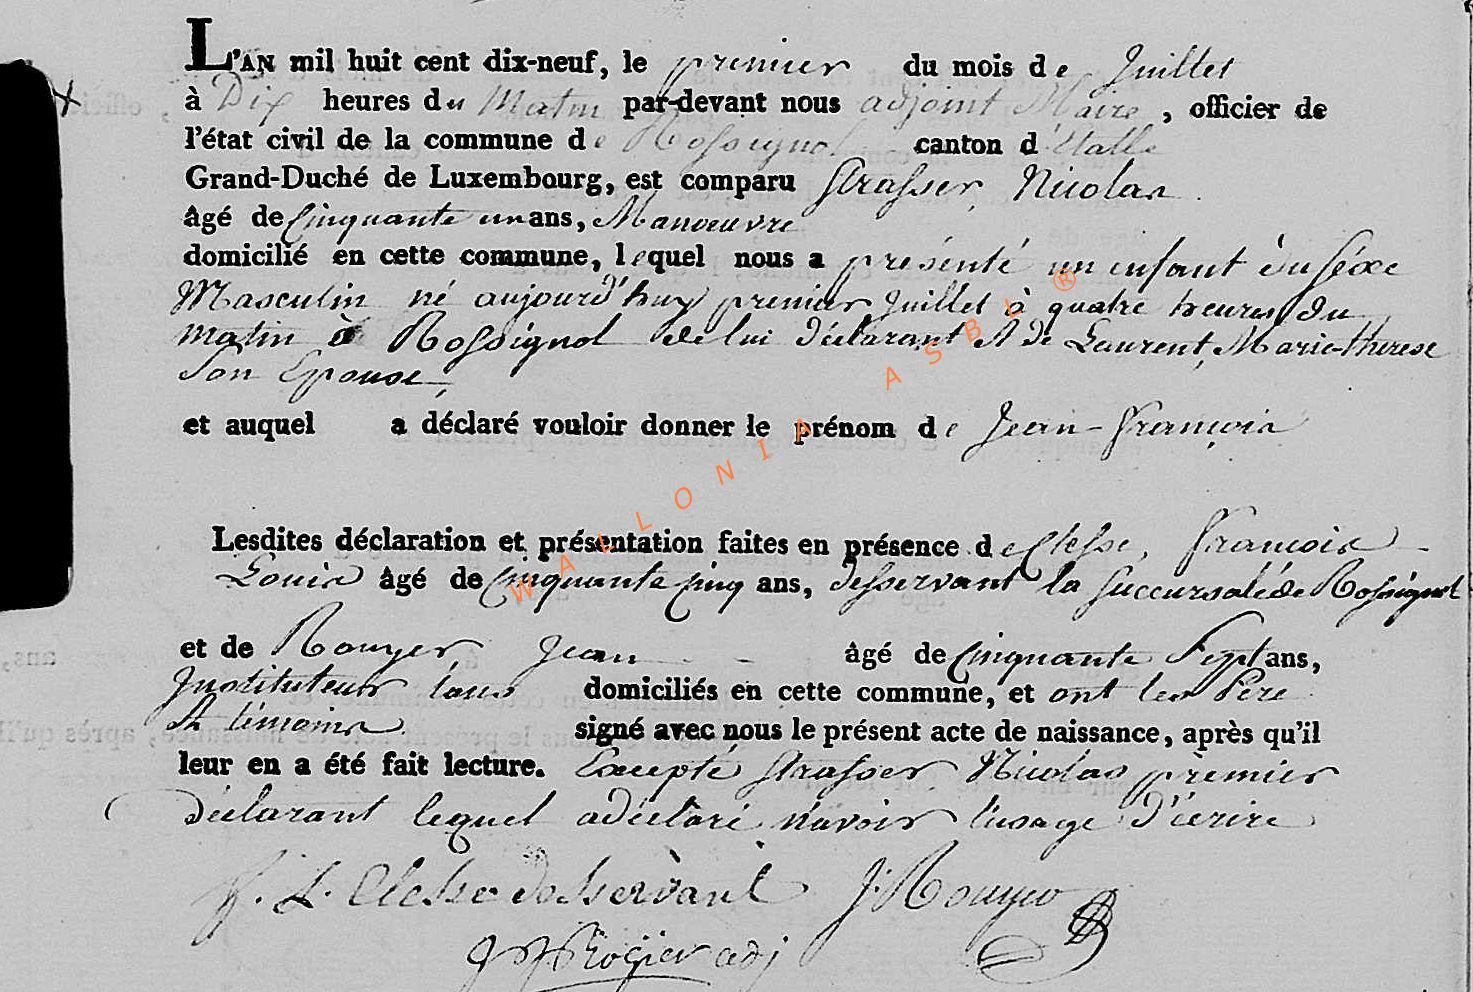 L'AN mil huit cent dix-neuf, le premier du mois de Juillet
à Dix heures du Matin par-devant nous adjoint Maire, officier de
l'état civil de la commune de Rossignol canton d'Etalle
Grand-Duché de Luxembourg, est comparu Strasser, Nicolas
âgé de Cinquante un ans, Manoeuvre
domicilié en cette commune, lequel nous a présenté un enfant du séxe
Masculin né aujourd'huy premier Juillet à quatre heures du
matin à Rossignol de lui déclarant et de Laurent, Marie-therese
Son Epouse,
et auquel a déclaré vouloir donner le prénom de Jean-François
Lesdites déclaration et présentation faites en présence de Clesse, François
Louis âgé de Cinquante Cinq ans, desservant la succursale de Rossignol
et de Rouyer Jean âgé de Cinquante Sept ans,
Instituteur tous domiciliés en cette commune, et ont les Pere
et témoins signé avec nous le présent acte de naissance, après qu'il
leur en a été fait lecture. Excepté Strasser Nicolas prémier
Déclarant lequel a déclaré n'avoir l'usage d'écrire
f. L. Clesse desservant J. Rouyer
Rogier adj
WALLONIA ASBL ®